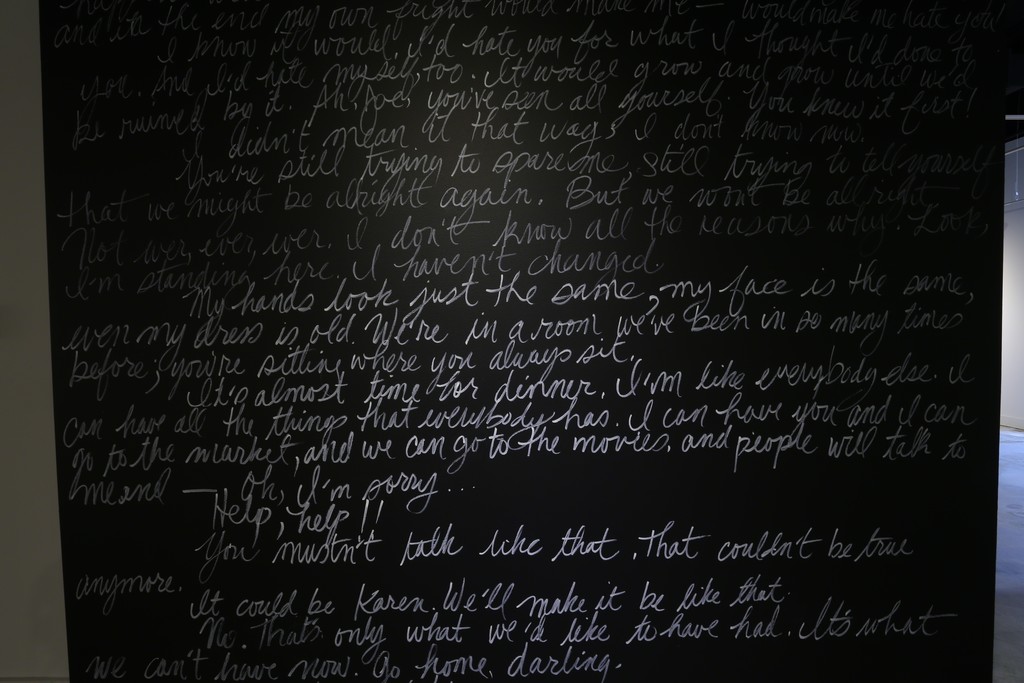 and in the end my own fright would make me — would make me hate you!
I know it would. I'd hate you for what I thought I'd done to
you. And I'd hate myself, too. It would grow and grow until we'd
be ruined by it. Ah, Joe, you've seen all yourself. You knew it first!
I didn't mean it that way; I don't know now.
You're still trying to spare me, still trying to tell yourself
that we might be alright again. But we won't be all right
Not ever, ever, ever. I don't know all the reasons why. Look,
I'm standing here. I haven't changed.
My hands look just the same, my face is the same,
even my dress is old. We're in a room we've been in so many times
before; you're sitting where you always sit.
It's almost time for dinner. I'm like everybody else. I
can have all the things that everybody has. I can have you and I can
go to the market, and we can go to the movies, and people will talk to
me and — oh, I'm sorry...
Help, help!!
You mustn't talk like that. That couldn't be true
anymore.
It could be Karen. We'll make it be like that.
No. That's only what we'd like to have had. It's what
we can't have now. Go home, darling.